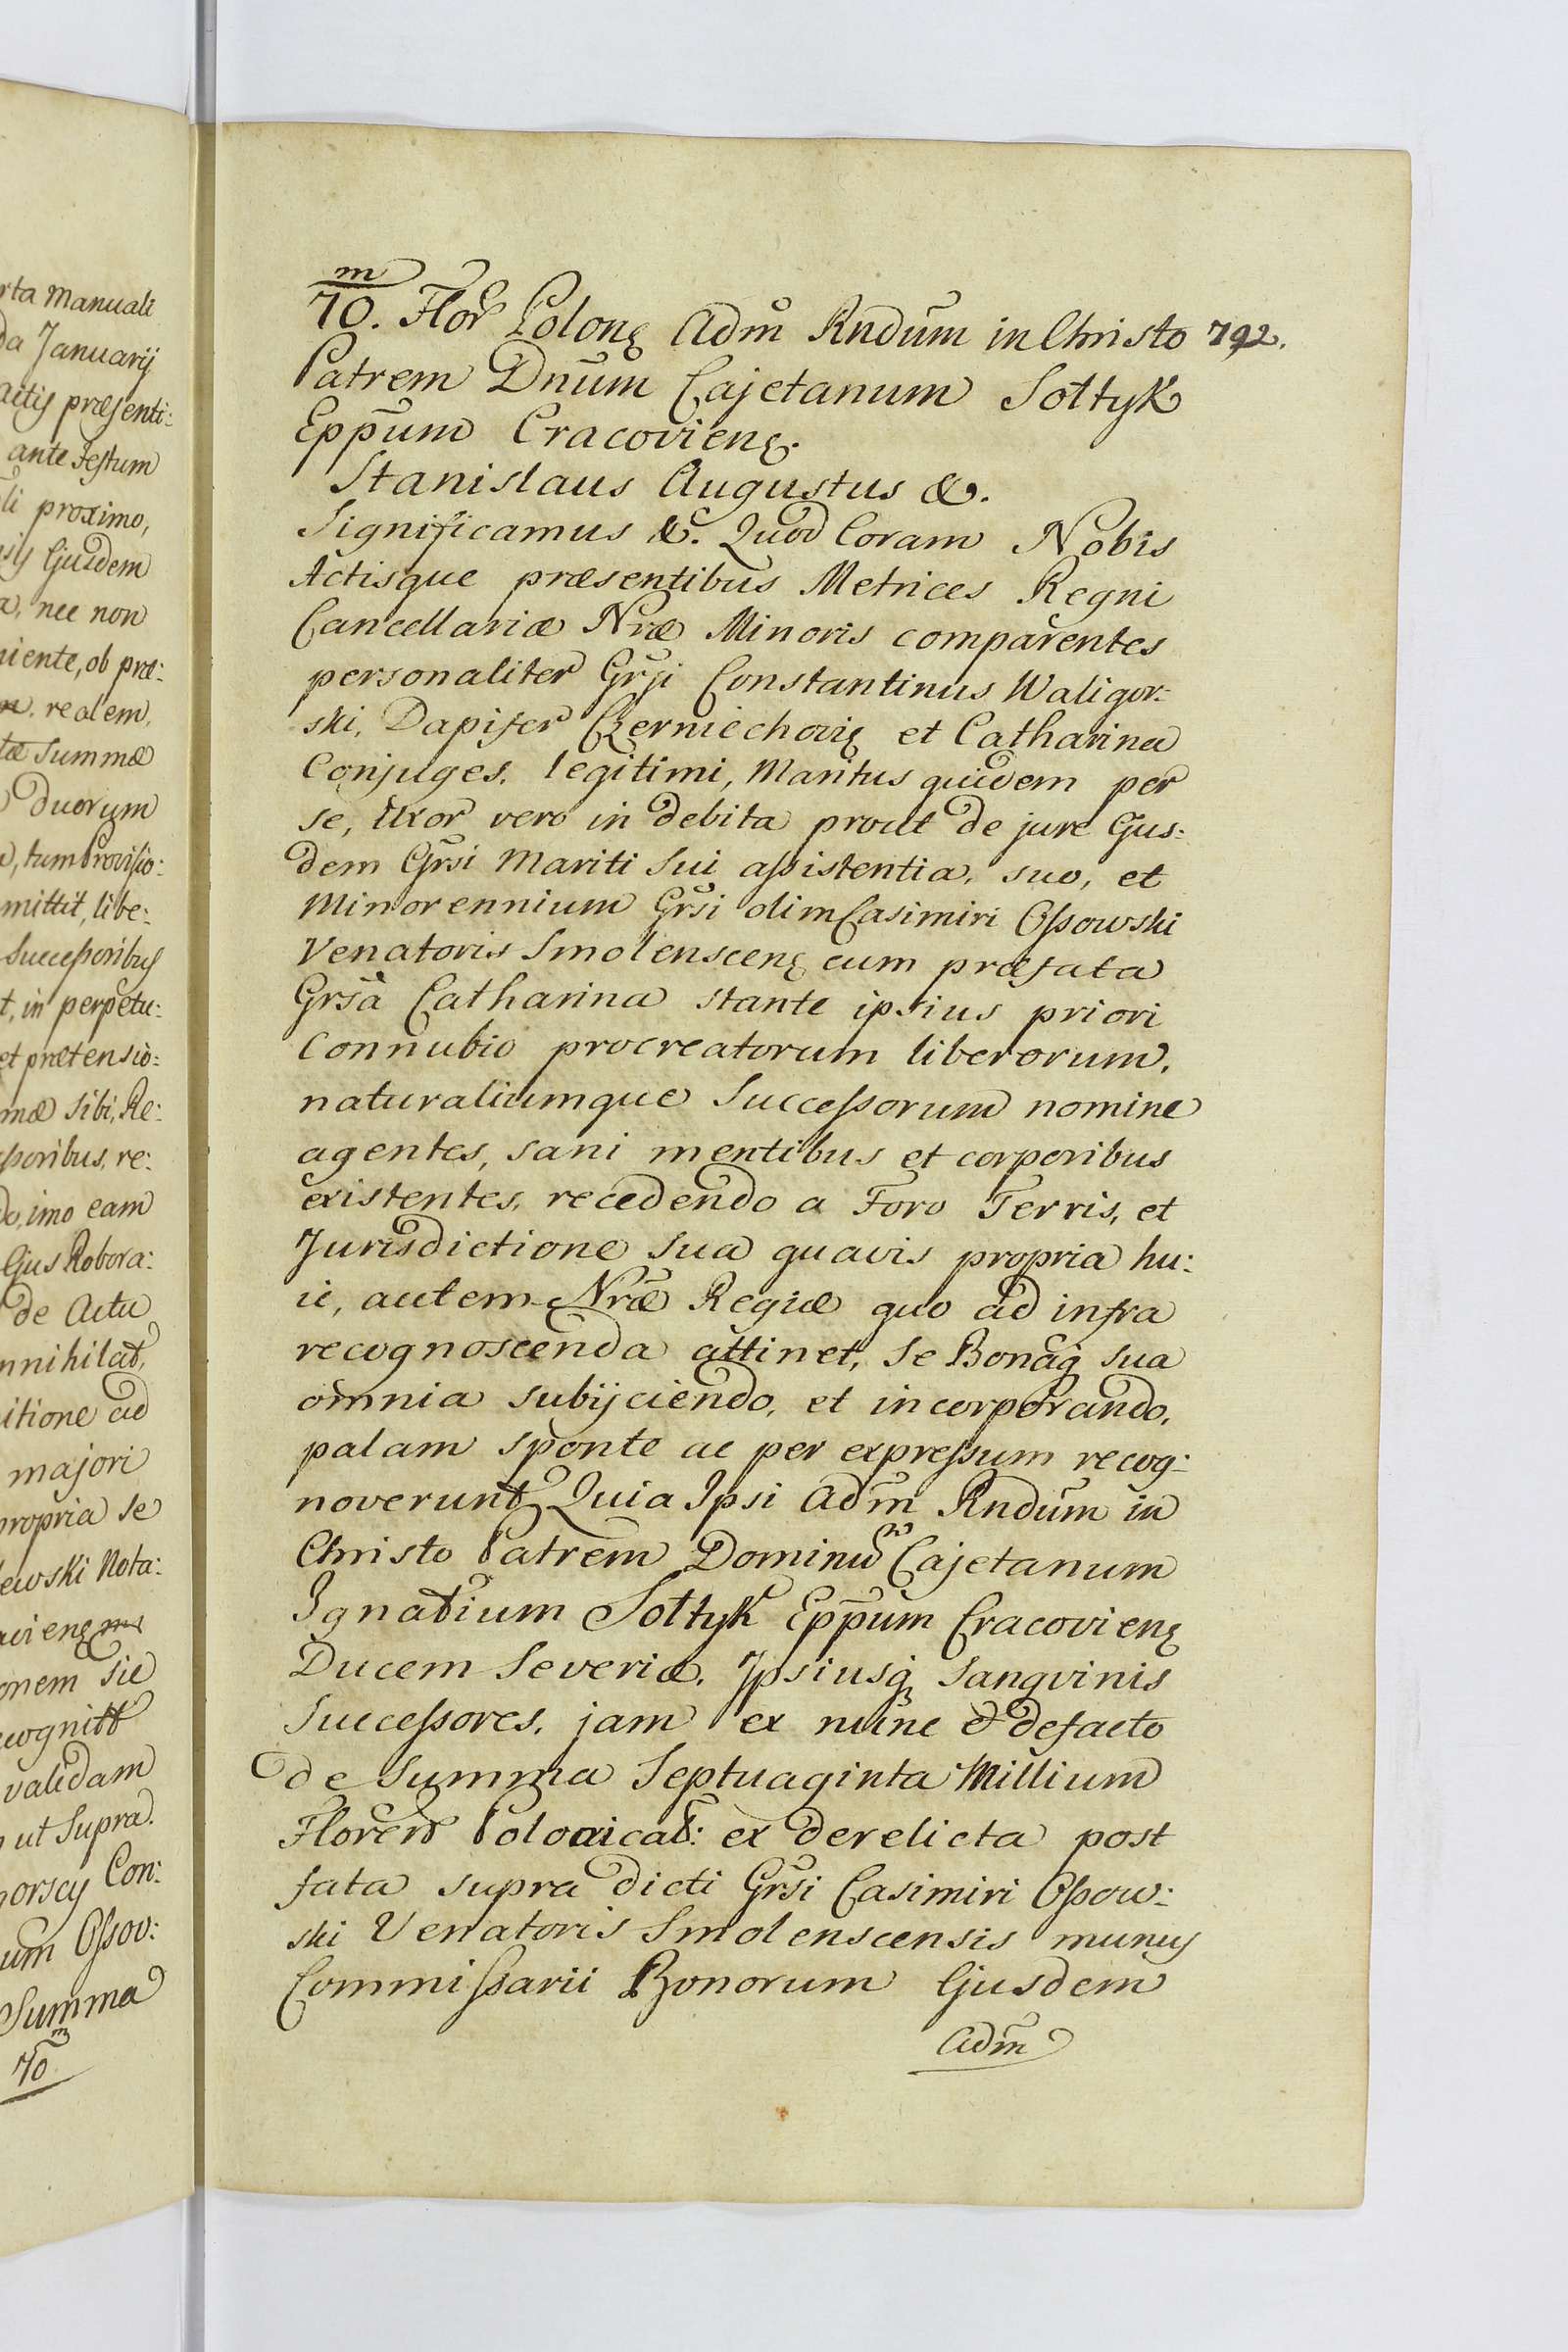 rta Manuali
da Januarij
actis præsenti:
ante Festum
li proximo,
Ejusdem
nec non
niente, ob præ:
realem,
Summæ
duorum
tum Provisio:
mittit, libe:
Successoribus
t, in perpetu:
et prætensio:
mæ sibi, Re:
ssoribus, re:
do, imo eam
Ejus Robora:
de Actu
nnihilat,
itione ad
majori
propria se
ewski Nota:
vienę
onem sic
cognitt
validam
ut Supra.
gorscy Con:
um Ossov:
Summa
m
70
m
70. Flor Polonę Adm̃ Rndum̃ in Christo 792.
Patrem Dnum̃ Cajetanum Sołtyk
Epp̃um Cracovienę.
Stanislaus Augustus &.
Significamus &. Quod Coram Nobis
Actisque præsentibus Metrices Regni
Cancellariæ Nræ Minoris comparentes
personaliter Grsi Constantinus Waligor:
ski, Dapifer Czerniechovię et Catharina
Conjuges, legitimi, Maritus quidem per
se, Uxor vero in debita prout de jure Ejus:
dem Grsi Mariti Sui assistentia, suo, et
Minorennium Grsi olim Casimiri Ossowski
Venatoris Smolenscenę cum præfata
Grsa Catharina stante ipsius priori
Connubio procreatorum liberorum,
naturaliumque Successorum nomine
agentes, sani mentibus et corporibus
existentes, recedendo a Foro Terris, et
Jurisdictione sua quavis propria hu:
ic, autem Nræ Regiæ quo ad infra
recognoscenda attinet, se Bonaq̃ sua
omnia subijciendo, et incorporando,
palam sponte ac per expressum recog:
noverunt Quia Ipsi Adm̃ Rndum̃ in
Christo Patrem Dominum Cajetanum
Ignatium Sołtyk Epp̃um Cracovienę
Ducem Severiæ, Ipsiusq̃ Sangvinis
Successores, jam ex nunc & defacto
de Summa Septuaginta Millium
Floren Polonicat: ex derelicta post
fata supra dicti Grsi Casimiri Ossow:
ski Venatoris Smolenscensis munus
Commissarii Bonorum Ejusdem
Adm̃